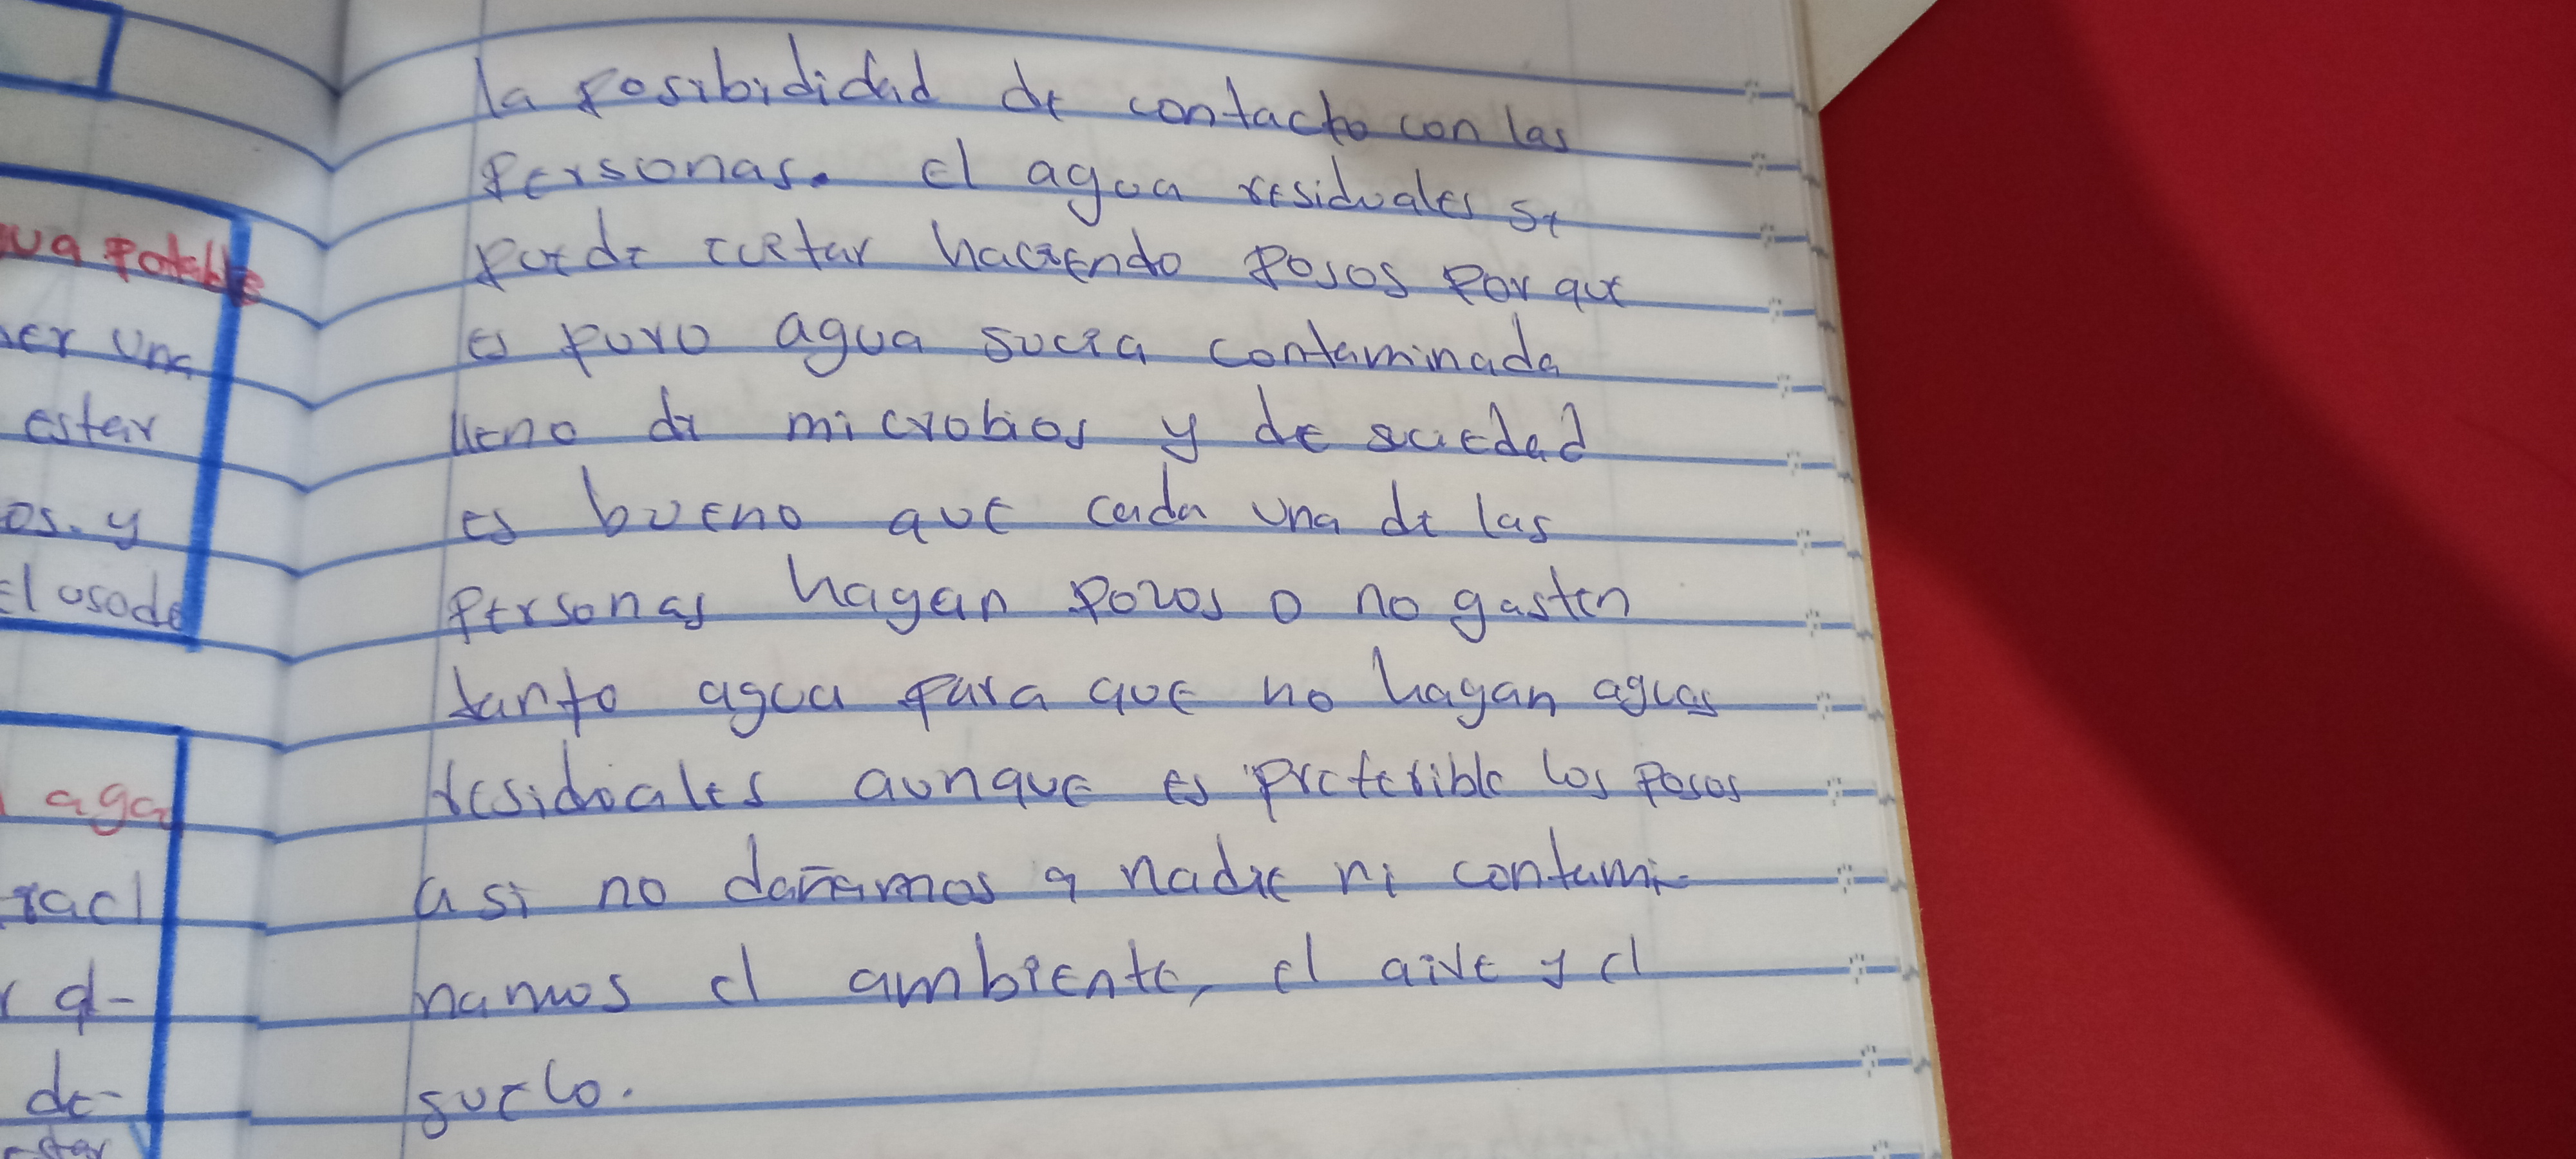 ua potable
er una
estar
os. y
el uso de
aga
racl
r q-
de-
la posibididad de contacto con las
personas. el agua residuales se
puede evitar haciendo posos por que
es puro agua sucia contaminada
lleno de microbios y de suciedad
es bueno que cada una de las
personas hagan pozos o no gasten
tanto agua para que no hagan aguas
residuales aunque es preferible los posos
asi no dañamos a nadie ni contami-
namos el ambiente, el aire y el
suelo.